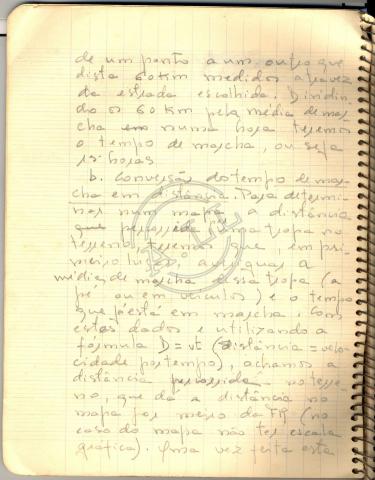 de um ponto a um outro que
dista 60 Km medidos atravez
da estrada escolhida. Dividin-
do os 60 Km pela média de mar-
cha em numa hora teremos
o tempo de marcha, ou seja
15 horas
b. Conversão do tempo de mar-
cha em distância. Para determi-
nar num mapa a distância
que percorrida uma tropa no
terreno, teremos que, em pri-
meiro lugar, a
média de marcha dessa tropa (a
pé ou em veículos) e o tempo
que já está em marcha. Com
estes dados e utilizando a
fórmula D = vt (distância = velo-
cidade por tempo), achamos a
distância percorrida no terre-
no, que dá a distância no
mapa por meio da FR (no
caso do mapa não ter escala
gráfica). Uma vez feita esta